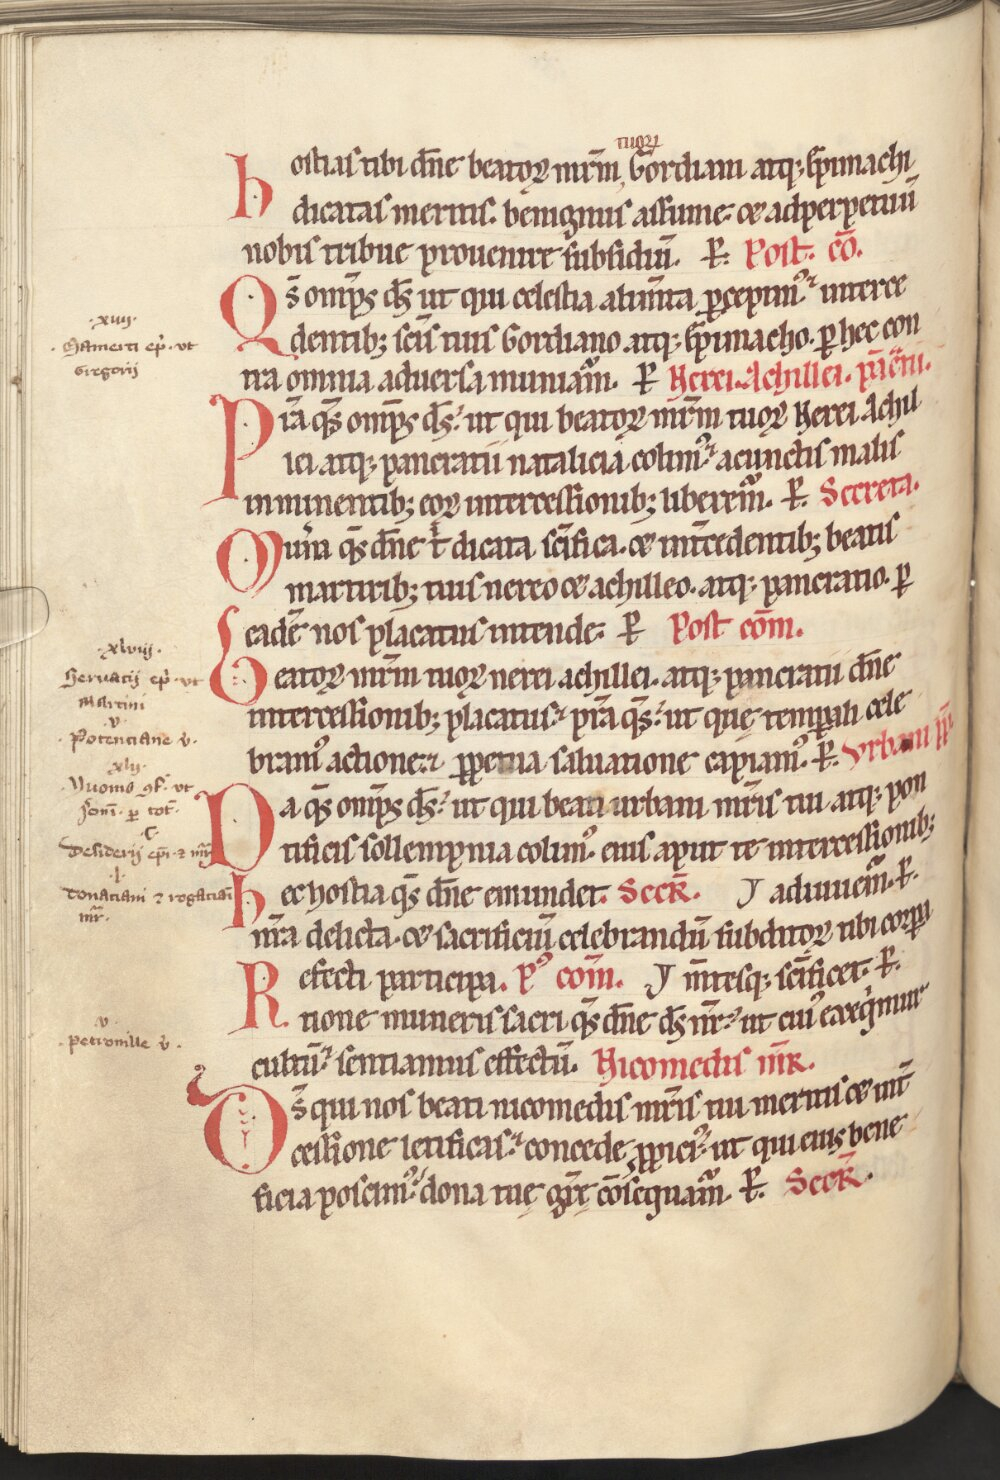 tuoꝝ
hostias tibi dn̄e beatoꝝ mr̄m, Gordiani atq; Epimachi
dicatas meritis. benignus assume. & ad perpetuū
nobis tribue prouenire subsidiū. P. Post. cō.
Qs̄ omp̄s ds̄ ut qui celestia alim̄ta ꝑcepim᷒ interce
dentib; scīs tuis Gordiano atq; Epimacho. ꝑ hec con
tra omnia aduersa muniam᷒. P Nerei. Achillei. pācīi.
Pr̄a qs̄ omp̄s ds̄ ut qui beatoꝝ mr̄m tuoꝝ Nerei Achil
lei atq; pancratii natalicia colim᷒ a cunctis malis
inminentib; eoꝝ intercessionib; liberem᷒. P. Secreta.
Mun̄a qs̄ dn̄e t̄ dicata sc̄ifica. & int̄cedentib; beatis
martirib; tuis nereo & achilleo. atq; pancratio. ꝑ
eadē nos placatus intende. P Post com̄.
Beatoꝝ mr̄m tuoꝝ nerei achillei. atq; pancratii dn̄e
intercessionib; placatus pr̄a qs̄ ut quę temꝑali cele
bram᷒ actione ꝑpetua saluatione capiam᷒. P. Vrbani pp̄
Da qs̄ omp̄s ds̄ ut qui beati urbani mr̄is tui atq; pon
tificis sollempnia colim᷒. eius aput te intercessionib;
hec hostia qs̄ dn̄e emundet. Secr̄. adiuuem᷒. P.
nr̄a delicta. & sacrificiū celebrandū subditoꝝ tibi corpa
Refecti participa. P᷒ com̄. m̄tesq; sc̄ificet. P.
tione muneris sacri qs̄ dn̄e ds̄ nr̄ ut cui᷒ exeq̄mur
cultū sentiamus effectū. Nicomedis mr̄.
Ds̄ qui nos beati nicomedis mr̄is tui meritis & int̄
cessione letificas concede ꝓpici᷒ ut qui eius bene
ficia poscim᷒ dona tuę gr̄ę cōsequam᷒. P. Secr̄.
.xiiij.
Mamerti ep̄i. vt
Gregorij
.xlviij.
Servatij ep̄i vt
Martini
v
Potentiane v.
.xlij.
ꝯf. vt
ꝑ tot̄.
.C.
Desiderij ep̄i ⁊ mr̄
Donatiani ⁊ rogatiani
mr̄.
v
Petronille v.